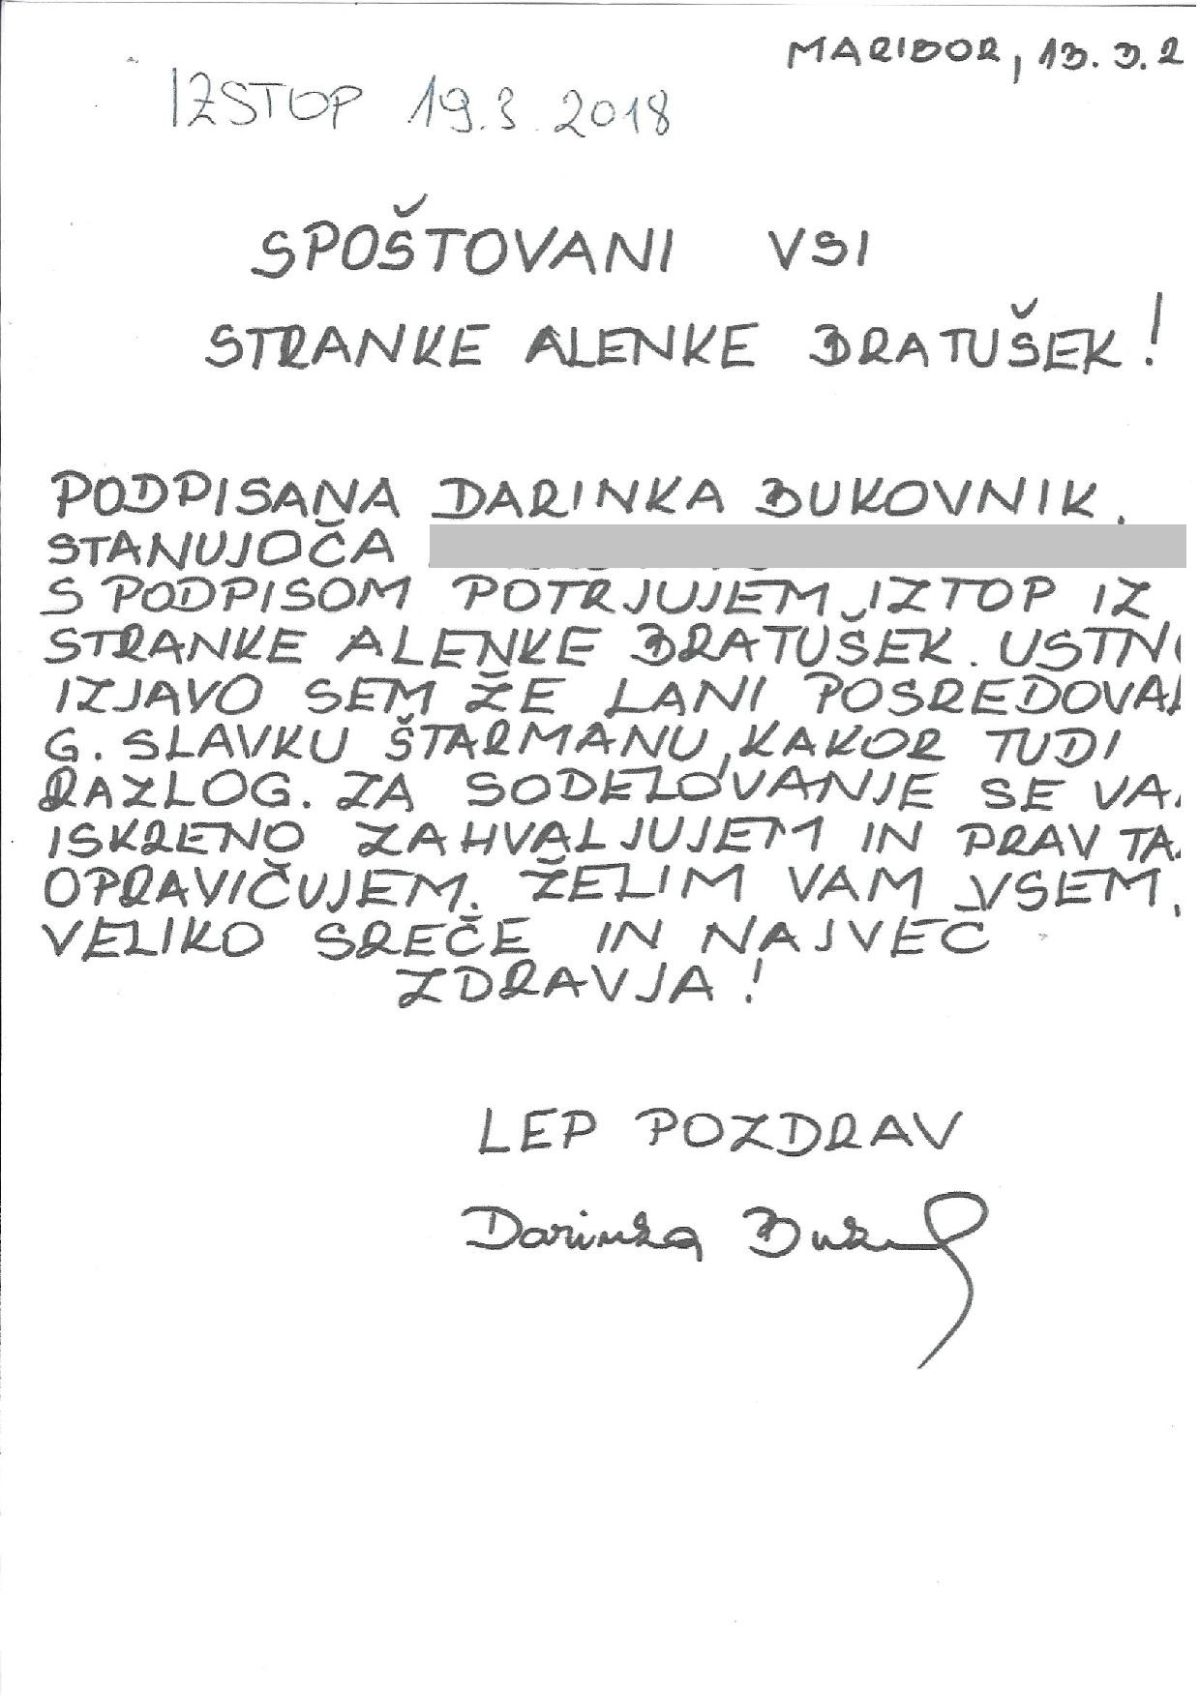 MARIBOR, 13.3.2
IZSTOP 19.3.2018
SPOŠTOVANI VSI
STRANKE ALENKE BRATUŠEK!
PODPISANA DARINKA BUKOVNIK,
STANUJOČA
S PODPISOM POTRJUJEM IZTOP IZ
STRANKE ALENKE BRATUŠEK. USTN
IZJAVO SEM ŽE LANI POSREDOVA
G. SLAVKU ŠTARMANU, KAKOR TUDI
RAZLOG. ZA SODELOVANJE SE VA
ISKRENO ZAHVALJUJEM IN PRAV TA
OPRAVIČUJEM. ŽELIM VAM VSEM,
VELIKO SREČE IN NAJVEČ
ZDRAVJA!
LEP POZDRAV
Darinka